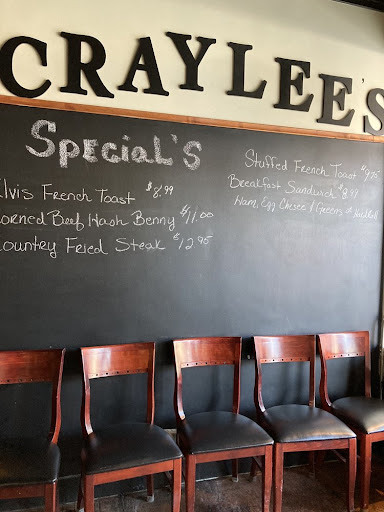 CRAYLEE'S
SPeciaL'S
Elvis French Toast $8.99
Corned Beef Hash Benny $11.00
Country Fried Steak $12.95
Stuffed French Toast $9.75
Breakfast Sandwich $8.99
Ham, Egg Cheese / Greens &